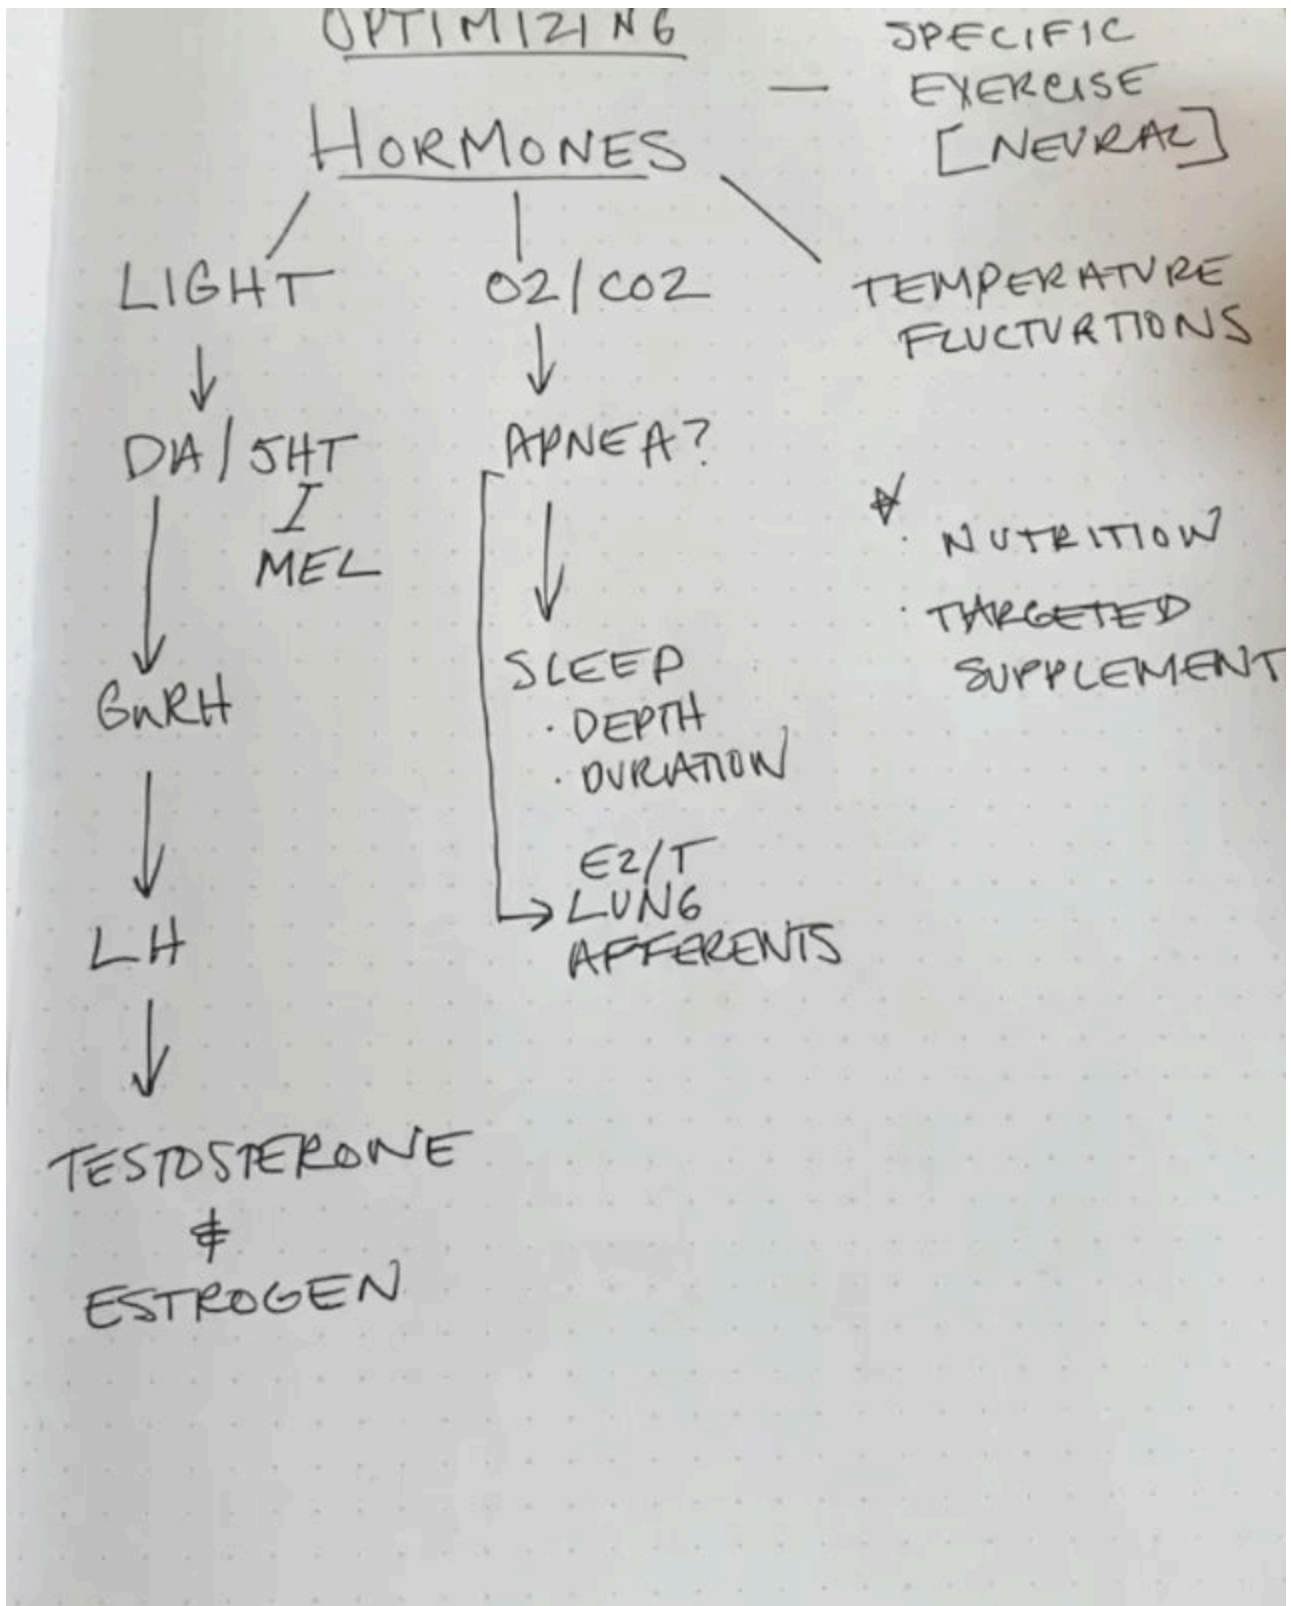 OPTIMIZING
HORMONES
— SPECIFIC
EXERCISE
[NEURAL]
LIGHT
↓
DA/5HT
I
MEL
↓
GnRH
↓
LH
↓
TESTOSTERONE
&
ESTROGEN
O2/CO2
↓
APNEA?
↓
SLEEP
· DEPTH
· DURATION
E2/T
→ LUNG
AFFERENTS
TEMPERATURE
FLUCTURTIONS
· NUTRITION
· TARGETED
SUPPLEMENT